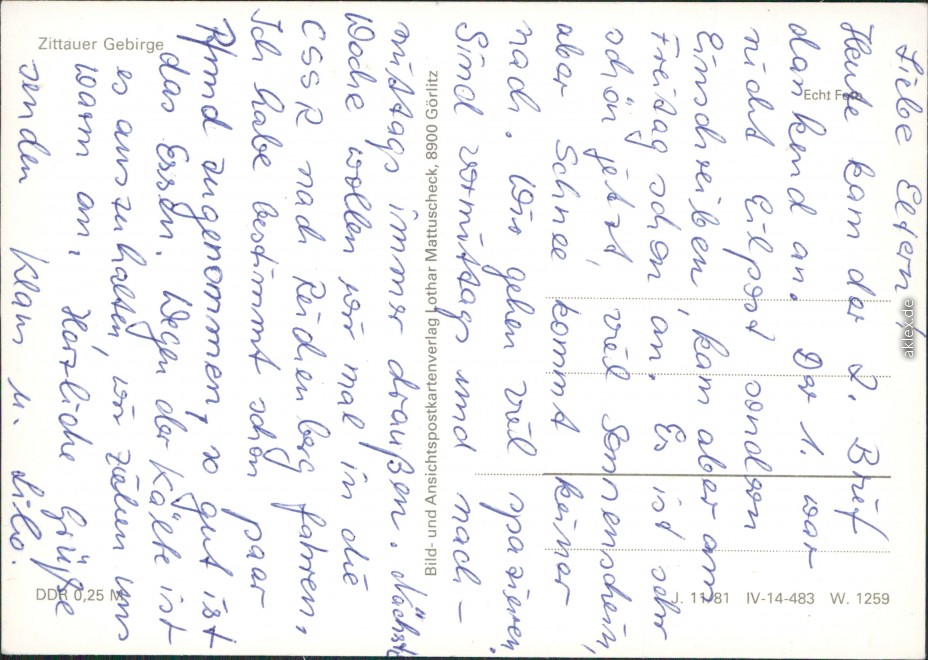 Liebe Eltern!
Heute kam der 2. Brief
dankend an. Der 1. war
nicht Eilpost sondern
Einschreiben, kam aber am
Freitag schon an. Es ist sehr
schön jetzt, viel Sonnenschein,
aber Schnee kommt keiner
nach. Wir gehen viel spazieren.
Sind vormittags und nach-
mittags immer draußen. Nächste
Woche wollen wir mal in die
CSSR nach Reichenberg fahren.
Ich habe bestimmt schon paar
Pfund zugenommen, so gut ist
das Essen. Wegen der Kälte ist
es auszuhalten, wir ziehen uns
warm an. Herzliche Grüße
senden Klaus u. Lilo.
Zittauer Gebirge
Echt Foto
Bild- und Ansichtspostkartenverlag Lothar Mattuscheck, 8900 Görlitz
DDR 0,25 M
J. 11/81 IV-14-483 W. 1259
aklex.de